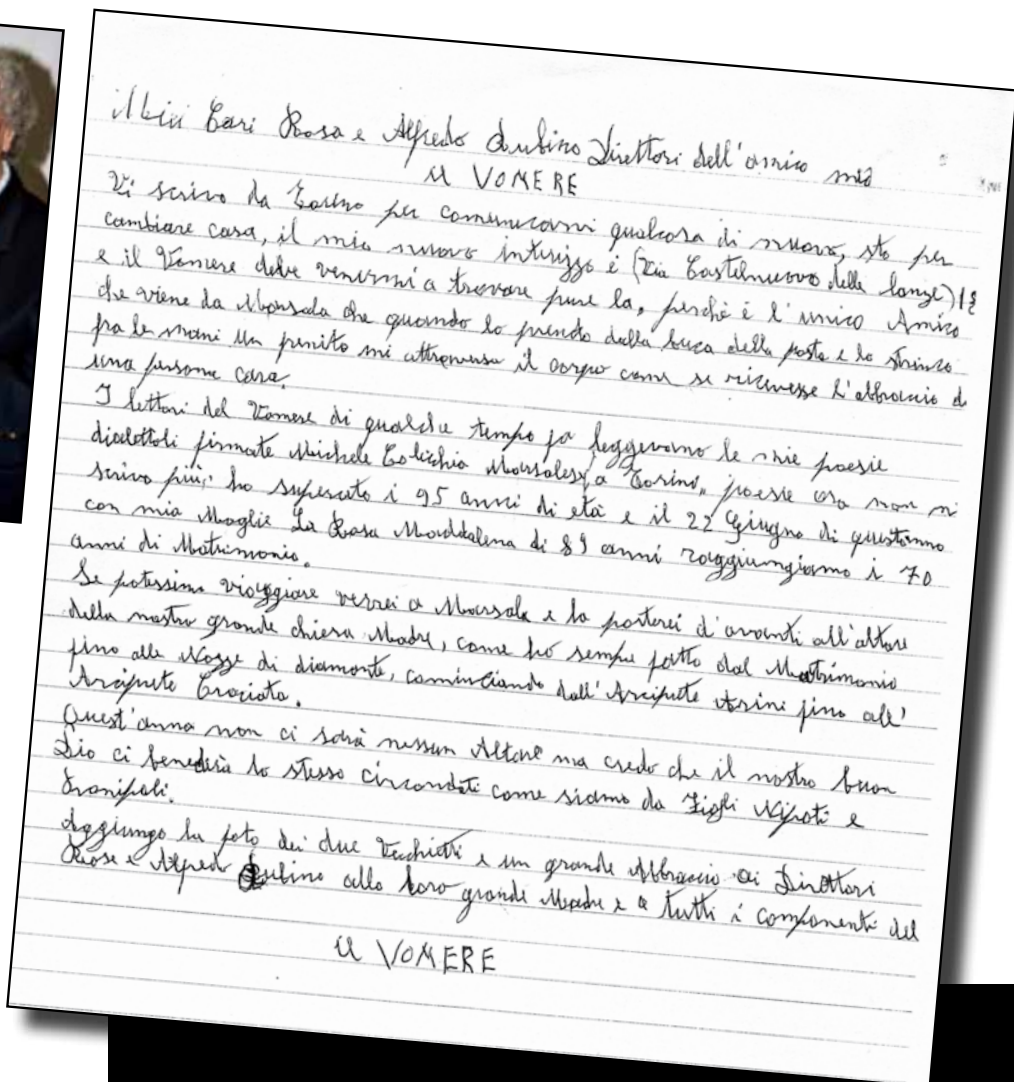 Miei Cari Rosa e Alfredo Rubino Direttori dell'amico mio
IL VOMERE
Vi scrivo da Torino per comunicarvi qualcosa di nuovo, sto per
cambiare casa, il mio nuovo inturizzo è (Via Castelnuovo delle lanze)
e il Vomere deve venirmi a trovare pure la, perchè è l'unico Amico
che viene da Marsala che quando lo prendo dalla buca della posta e lo stringo
fra le mani un fremito mi attraversa il corpo come se ricevesse l'abbraccio di
una persona cara.
I lettori del Vomere di qualche tempo fa leggevano le mie poesie
dialettali firmate Michele Marsalese a Torino, poesie ora non ni
scrivo più, ho superato i 95 anni di età e il 22 Giugno di quest'anno
con mia Moglie La Rosa Maddalena di 89 anni raggiungiamo i 70
anni di Matrimonio.
Se potessimo viaggiare verrei a Marsala e la porterei d'avanti all'altare
della nostra grande chiesa Madre, come hò sempre fatto dal Matrimonio
fino alle Nozze di diamante, cominciando dall'Arciprete Arini fino all'
Arciprete Crociata.
Quest'anno non ci sarà nessun Altare ma credo che il nostro buon
Dio ci benedirà lo stesso circondati come siamo da Figli Nipoti e
Pronipoti.
Aggiungo la foto dei due Vecchietti e un grande Abbraccio ai Direttori
Rosa e Alfredo Rubino alla loro grande Madre e a tutti i componenti del
IL VOMERE